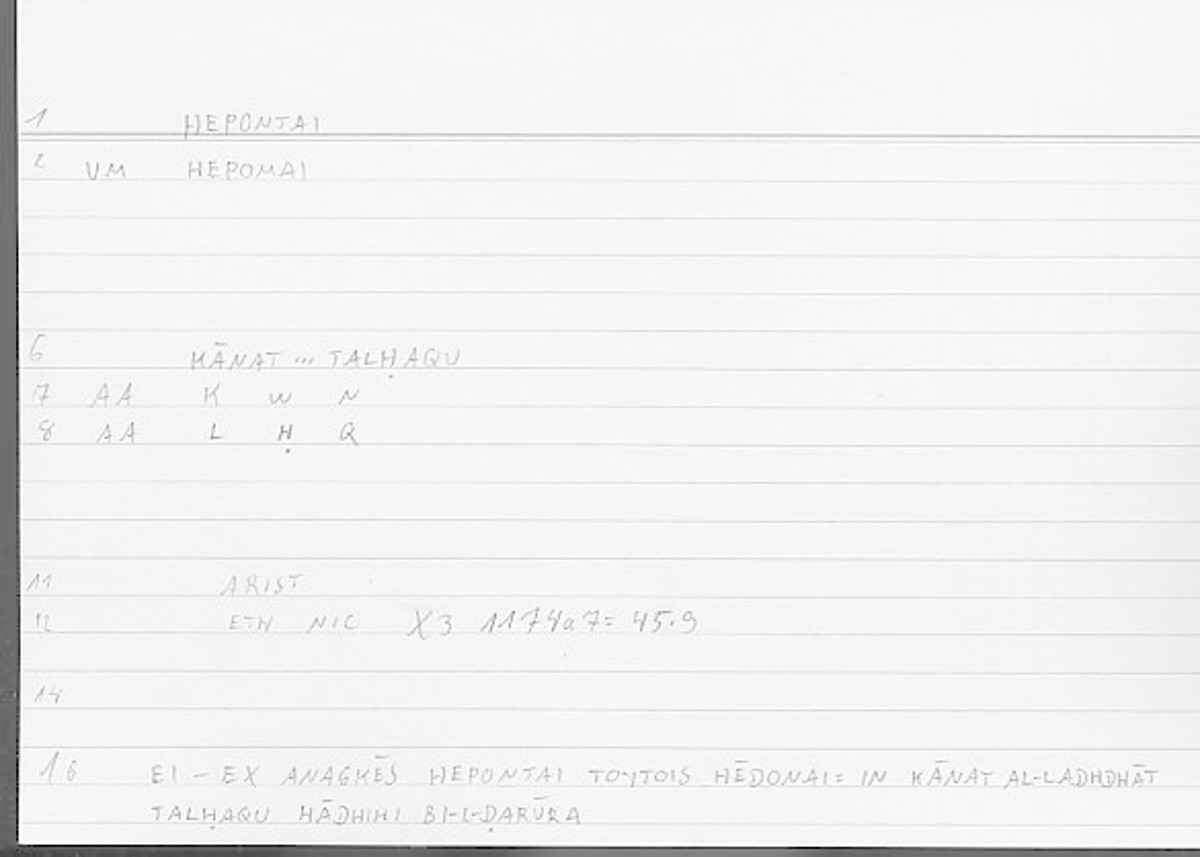 1 HEPONTAI
2 VM HEPOMAI
6 KĀNAT ... TALḤAQU
7 AA K W N
8 AA L Ḥ Q
11 ARIST
12 ETH NIC X3 1174a7= 45.9
14
16 EI - EX ANAGKĒS HEPONTAI TOYTOIS HĒDONAI= IN KĀNAT AL-LADHDHĀT
TALḤAQU HĀDHIHI BI-L-ḌARŪRA